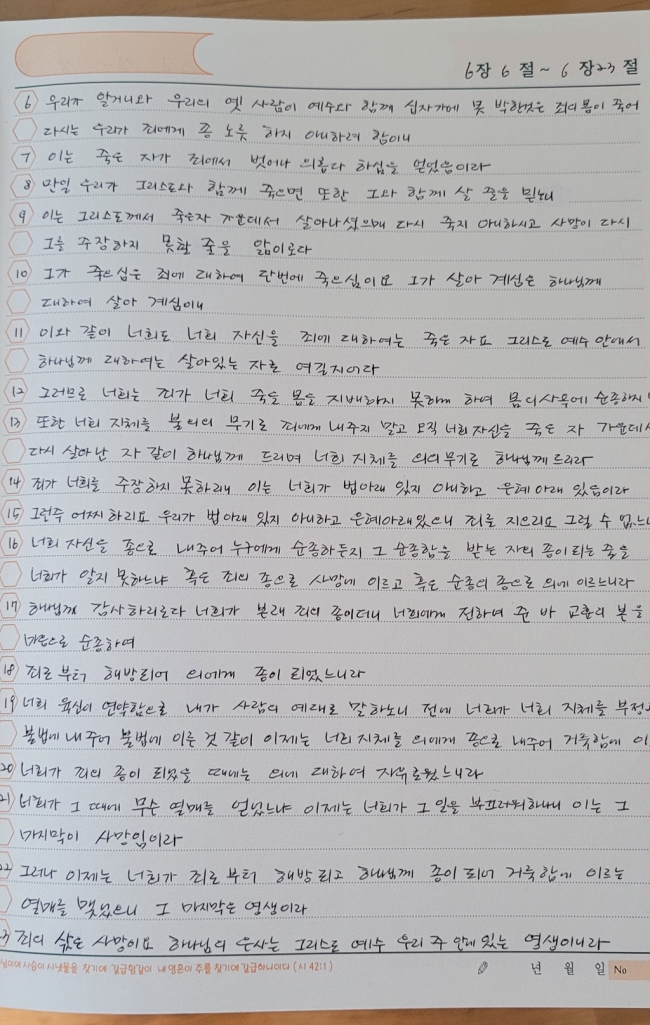 6장 6절 ~ 6장 23절
6 우리가 알거니와 우리의 옛 사람이 예수와 함께 십자가에 못 박힌것은 죄의 몸이 죽어
다시는 우리가 죄에게 종 노릇 하지 아니하려 함이니
7 이는 죽은 자가 죄에서 벗어나 의롭다 하심을 얻었음이라
8 만일 우리가 그리스도와 함께 죽으면 또한 그와 함께 살 줄을 믿노니
9 이는 그리스도께서 죽은자 가운데서 살아나셨으매 다시 죽지 아니하시고 사망이 다시
그를 주장하지 못할 줄을 앎이로다
10 그가 죽으심은 죄에 대하여 단번에 죽으심이요 그가 살아 계심은 하나님께
대하여 살아 계심이니
11 이와 같이 너희도 너희 자신을 죄에 대하여는 죽은 자요 그리스도 예수 안에서
하나님께 대하여는 살아있는 자로 여길지어다
12 그러므로 너희는 죄가 너희 죽을 몸을 지배하지 못하게 하여 몸의 사욕에 순종하지
13 또한 너희 지체를 불의의 무기로 죄에게 내주지 말고 오직 너희 자신을 죽은 자 가운데서
다시 살아난 자 같이 하나님께 드리며 너희 지체를 의의 무기로 하나님께 드리라
14 죄가 너희를 주장하지 못하리니 이는 너희가 법아래 있지 아니하고 은혜 아래 있음이라
15 그런즉 어찌하리요 우리가 법 아래 있지 아니하고 은혜아래있으니 죄를 지으리요 그럴 수 없느니
16 너희 자신을 종으로 내주어 누구에게 순종하든지 그 순종함을 받는 자의 종이 되는 줄을
너희가 알지 못하느냐 혹은 죄의 종으로 사망에 이르고 혹은 순종의 종으로 의에 이르느니라
17 하나님께 감사하리로다 너희가 본래 죄의 종이더니 너희에게 전하여 준 바 교훈의 본을
마음으로 순종하여
18 죄로 부터 해방되어 의에게 종이 되었느니라
19 너희 육신이 연약함으로 내가 사람의 예대로 말하노니 전에 너희가 너희 지체를 부정
불법에 내주어 불법에 이른 것 같이 이제는 너희 지체를 의에게 종으로 내주어 거룩함에 이
20 너희가 죄의 종이 되었을 때에는 의에 대하여 자유로웠느니라
21 너희가 그 때에 무슨 열매를 얻었느냐 이제는 너희가 그 일을 부끄러워하나니 이는 그
마지막이 사망임이라
22 그러나 이제는 너희가 죄로 부터 해방되고 하나님께 종이 되어 거룩함에 이르는
열매를 맺었으니 그 마지막은 영생이라
3 죄의 삯은 사망이요 하나님의 은사는 그리스도 예수 우리 주 안에 있는 영생이니라
님이여 사슴이 시냇물을 찾기에 갈급함같이 내 영혼이 주를 찾기에 갈급하니이다 (시 42:1)
년 월 일 No